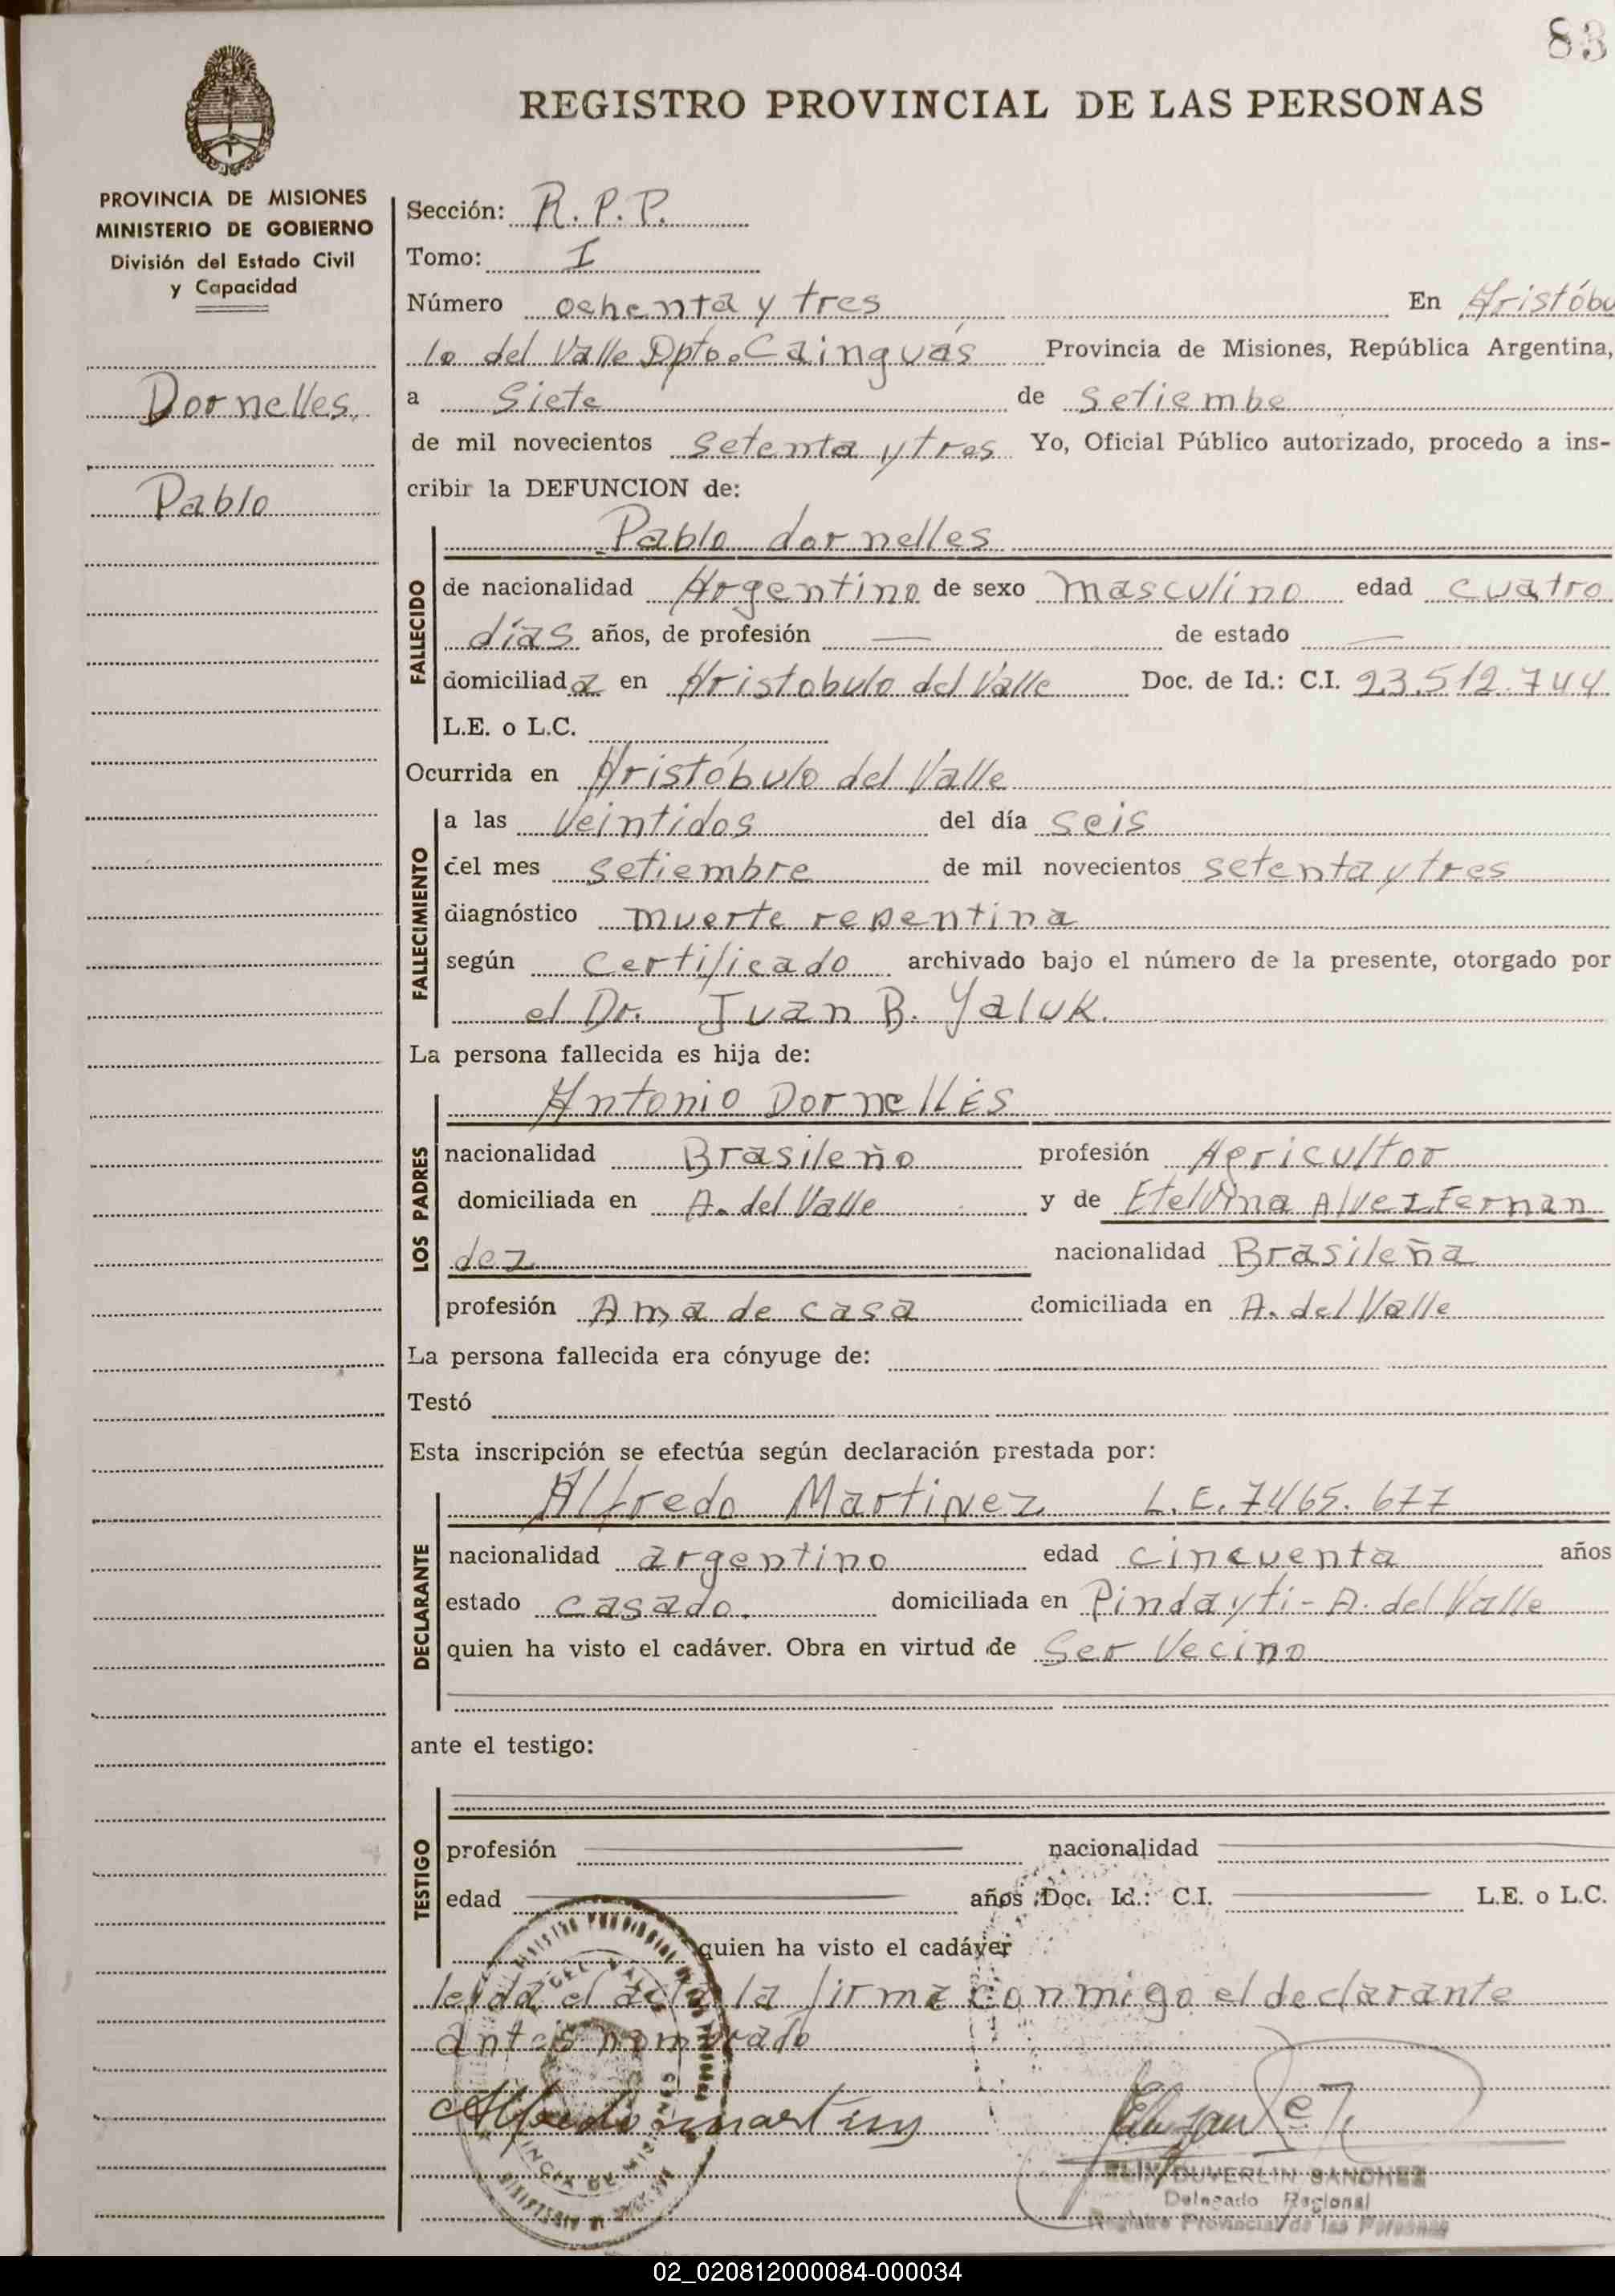 83
REGISTRO PROVINCIAL DE LAS PERSONAS
PROVINCIA DE MISIONES
MINISTERIO DE GOBIERNO
División del Estado Civil
y Capacidad
Dornelles
Pablo
Sección: R.P.P.
Tomo: I
Número ochenta y tres En Aristóbu
lo del Valle Dpto. Cainguás Provincia de Misiones, República Argentina,
a Siete de setiembe
de mil novecientos setenta y tres Yo, Oficial Público autorizado, procedo a ins-
cribir la DEFUNCION de:
Pablo dornelles
FALLECIDO
de nacionalidad Argentino de sexo masculino edad cuatro
días años, de profesión — de estado —
domiciliada en Aristobulo del Valle Doc. de Id.: C.I. 23.512.744
L.E. o L.C.
Ocurrida en Aristóbulo del Valle
FALLECIMIENTO
a las Veintidos del día seis
del mes setiembre de mil novecientos setenta y tres
diagnóstico muerte repentina
según certificado archivado bajo el número de la presente, otorgado por
el Dr. Juan B. Yaluk.
La persona fallecida es hija de:
Antonio Dornelles
LOS PADRES
nacionalidad Brasileño profesión Agricultor
domiciliada en A. del Valle y de Etelvina Alvez Fernan
dez nacionalidad Brasileña
profesión Ama de casa domiciliada en A. del Valle
La persona fallecida era cónyuge de:
Testó
Esta inscripción se efectúa según declaración prestada por:
Alfredo Martinez L.E. 7.465.677
DECLARANTE
nacionalidad argentino edad cincuenta años
estado casado. domiciliada en Pindayti - A. del Valle
quien ha visto el cadáver. Obra en virtud de Ser Vecino
ante el testigo:
TESTIGO
profesión nacionalidad
edad años Doc. Id.: C.I. L.E. o L.C.
quien ha visto el cadáver
leida el acta la firma conmigo el declarante
antes nombrado
Alfredo martinez
ELIX DUVERLIN SANCHEZ
Delegado Regional
Registro Provincial de las Personas
02_020812000084-000034